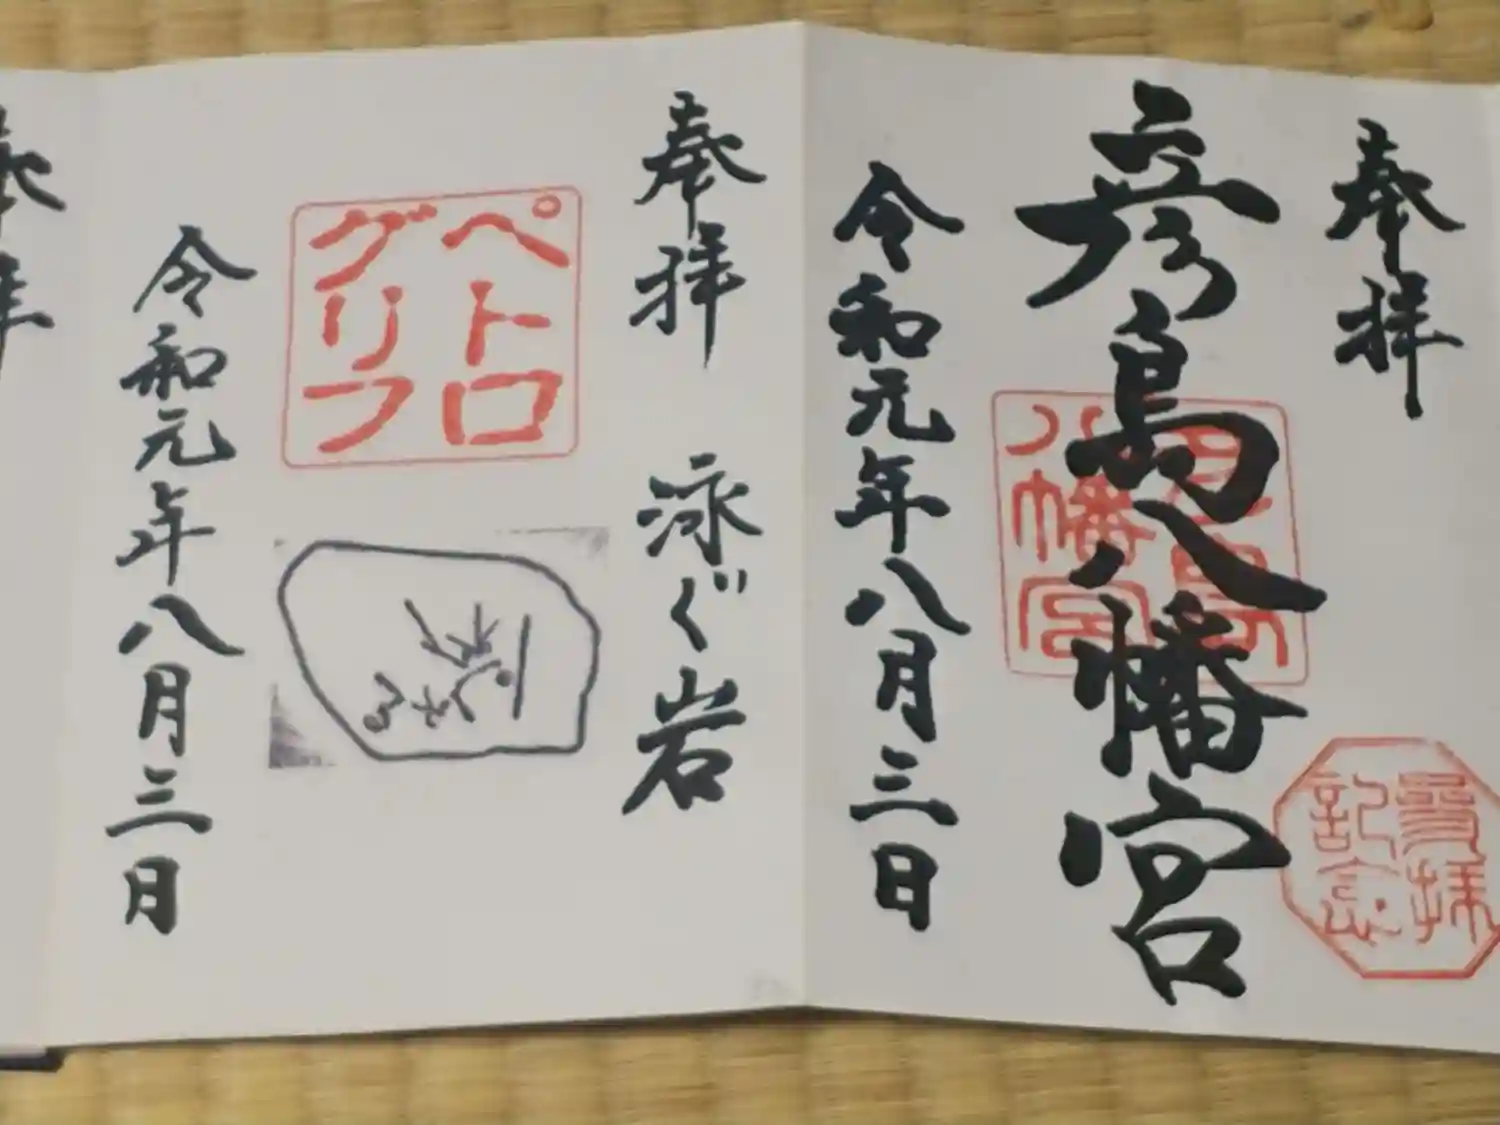 奉拝
彦島八幡宮
八幡宮
参拝
記念
令和元年八月三日
奉拝 泳ぐ岩
ペトログリフ
令和元年八月三日
奉拝